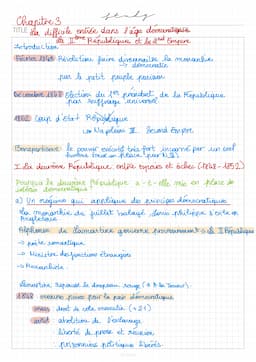 study
Chapitre 3
TITLE La difficile entrée dans l'âge démocratique
La IIème République et le 2nd Empire
Introduction
Février 1848 Révolution faire disparaître la monarchie
→ démocratie
par le petit peuple parisien
Décembre 1848 Election du 1er président de la République
par suffrage universel
1852 Coup d'Etat République
↳ Napoléon III Second Empire
Bonapartisme : le pouvoir exécutif très fort incarné par un seul
homme
I. La deuxième République, entre espoirs et échec (1848-1852)
Pourquoi la deuxième République a-t-elle mis en place de
démocratique
a) Un régime qui applique des principes démocratiques
La monarchie de juillet Louis Philippe à cela en
Alphonse de Lamartine gouverne provisoirement → la II République
→ poète romantique
→ Ministre des fonctions étrangères
→
Lamartine : Repoussé le drapeau rouge
1848 mesures prises pour la paix démocratique
mars droit de vote masculin (+21)
avril : abolition de l'esclavage
liberté de presse et réunion
prisonniers politiques libérés